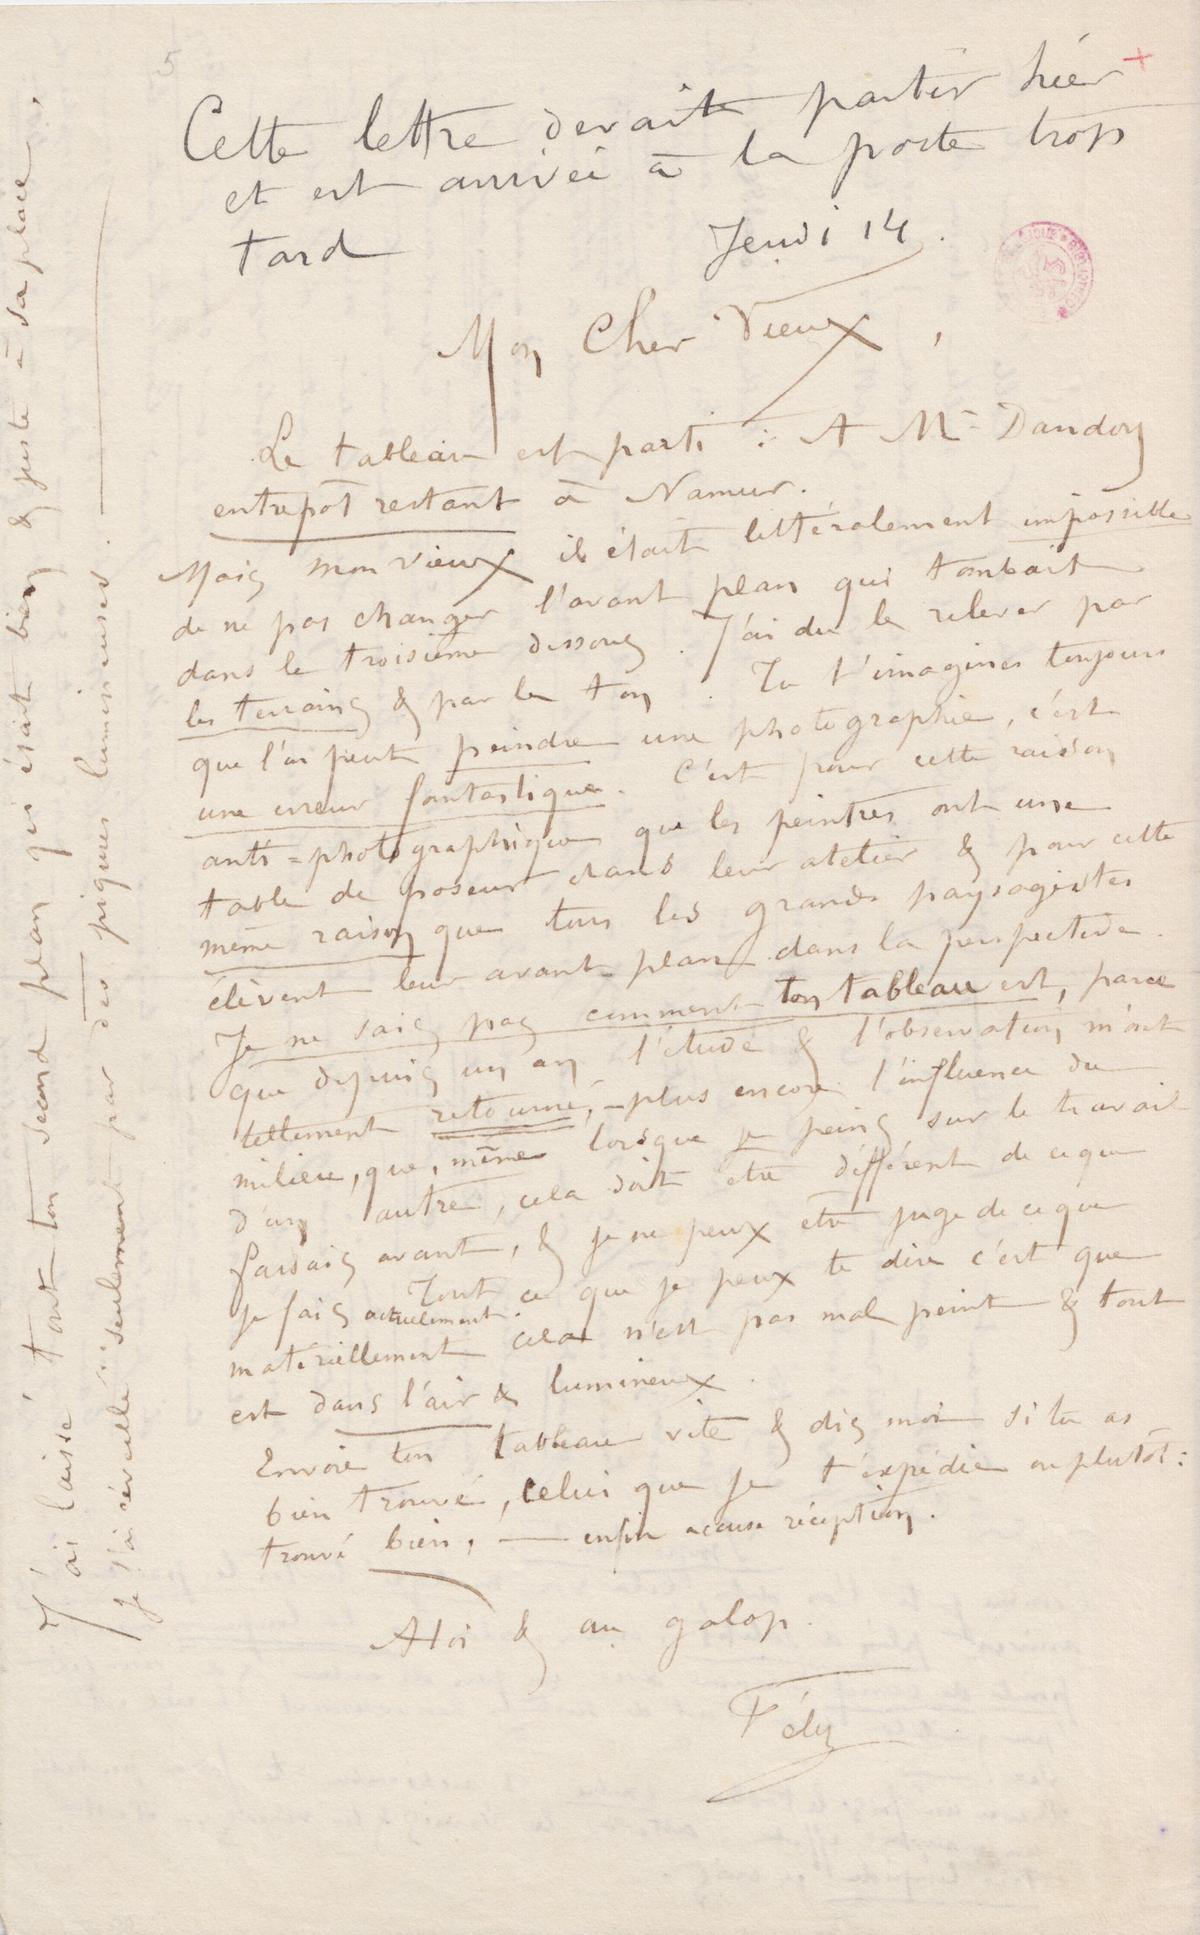 5
Cette lettre devait partir hier
et est arrivée à la poste trop
tard
Jeudi 14.
Mon Cher Vieux,
Le tableau est parti : A Mr Dandoy
entrepôt restant à Namur.
Mais mon vieux il était littéralement impossible
de ne pas changer l'avant plan qui tombait
dans le troisième dessous. J'ai du le relever par
les terrains & par le ton. Tu t'imagines toujours
que l'on peut peindre une photographie, c'est
une erreur fantastique. C'est pour cette raison
anti-photographique que les peintres ont une
table de poseur dans leur atelier & pour cette
même raison que tous les grands paysagistes
élèvent leur avant-plan dans la perspective.
Je ne sais pas comment ton tableau est, parce
que depuis un an l'étude & l'observation m'ont
tellement retourné, - plus encore l'influence du
milieu, que, même lorsque je peins sur le travail
d'un autre, cela doit être différent de ce que
faisais avant, & je ne peux être juge de ce que
je fais actuellement. Tout ce que je peux te dire c'est que
matériellement cela n'est pas mal peint & tout
est dans l'air & lumineux.
Envoie ton tableau vite & dis moi si tu as
bien trouvé, celui que je t'expédie ou plutôt :
trouvé bien, — enfin accuse réception.
A toi & au galop.
Fély
J'ai laissé tout ton second plan qui était bien & juste à sa place,
je l'ai réveillé seulement par des piqures lumineuses.